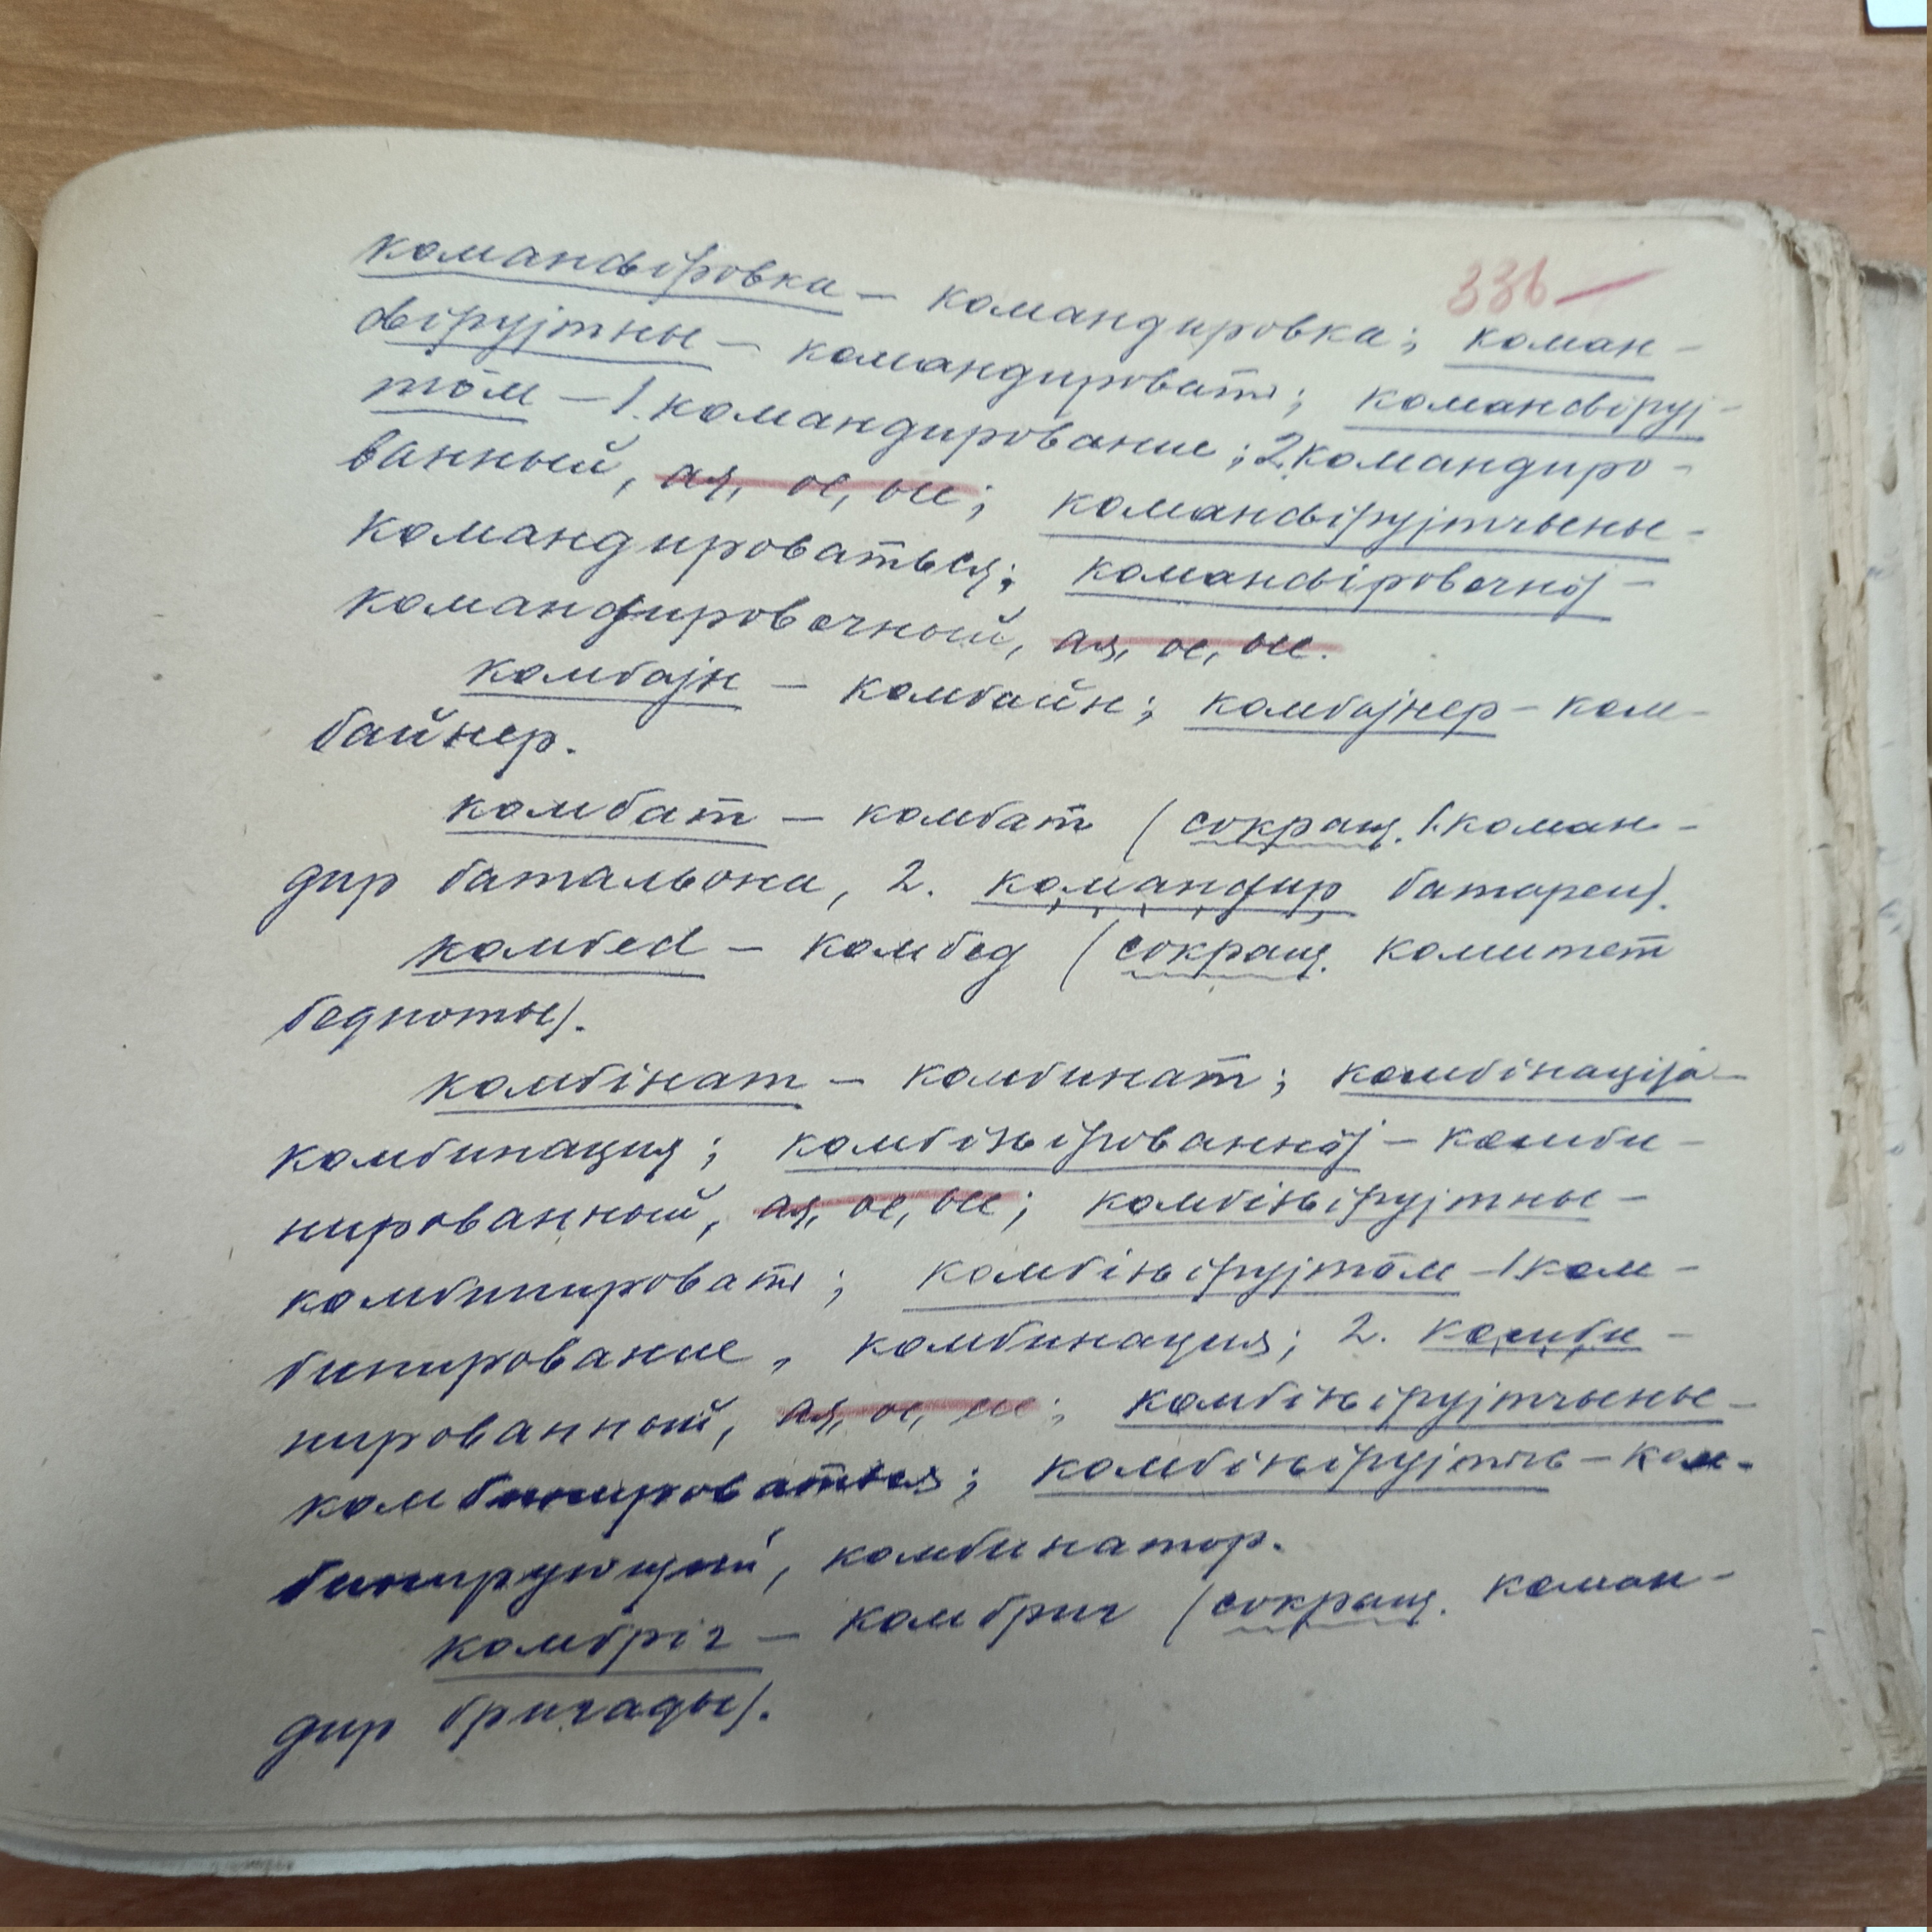 336
команԃіровка – командировка; коман-
ԃірујтны – командировать; команԃіруј-
тӧм – 1. командирование; 2. командиро-
ванный, ая, ое, ые; команԃірујтчыны –
командироваться; команԃіровочнӧј –
командировочный, ая, ое, ые.
комбајн – комбайн; комбајнер – ком-
байнер.
комбат – комбат (сокращ. 1. коман-
дир батальона, 2. командир батареи).
комбеԁ – комбед (сокращ. комитет
бедноты).
комбінат – комбинат; комбінаціја –
комбинация; комбіԋірованнӧј – комби-
нированный, ая, ое, ые; комбіԋірујтны –
комбинировать; комбіԋірујтӧм – 1. ком-
бинирование, комбинация; 2. комби-
нированный, ая, ое, ые; комбіԋірујтчыны –
комбинироваться; комбіԋірујтыԍ – ком-
бинирующий, комбинатор.
комбріг – комбриг (сокращ. коман-
дир бригады).